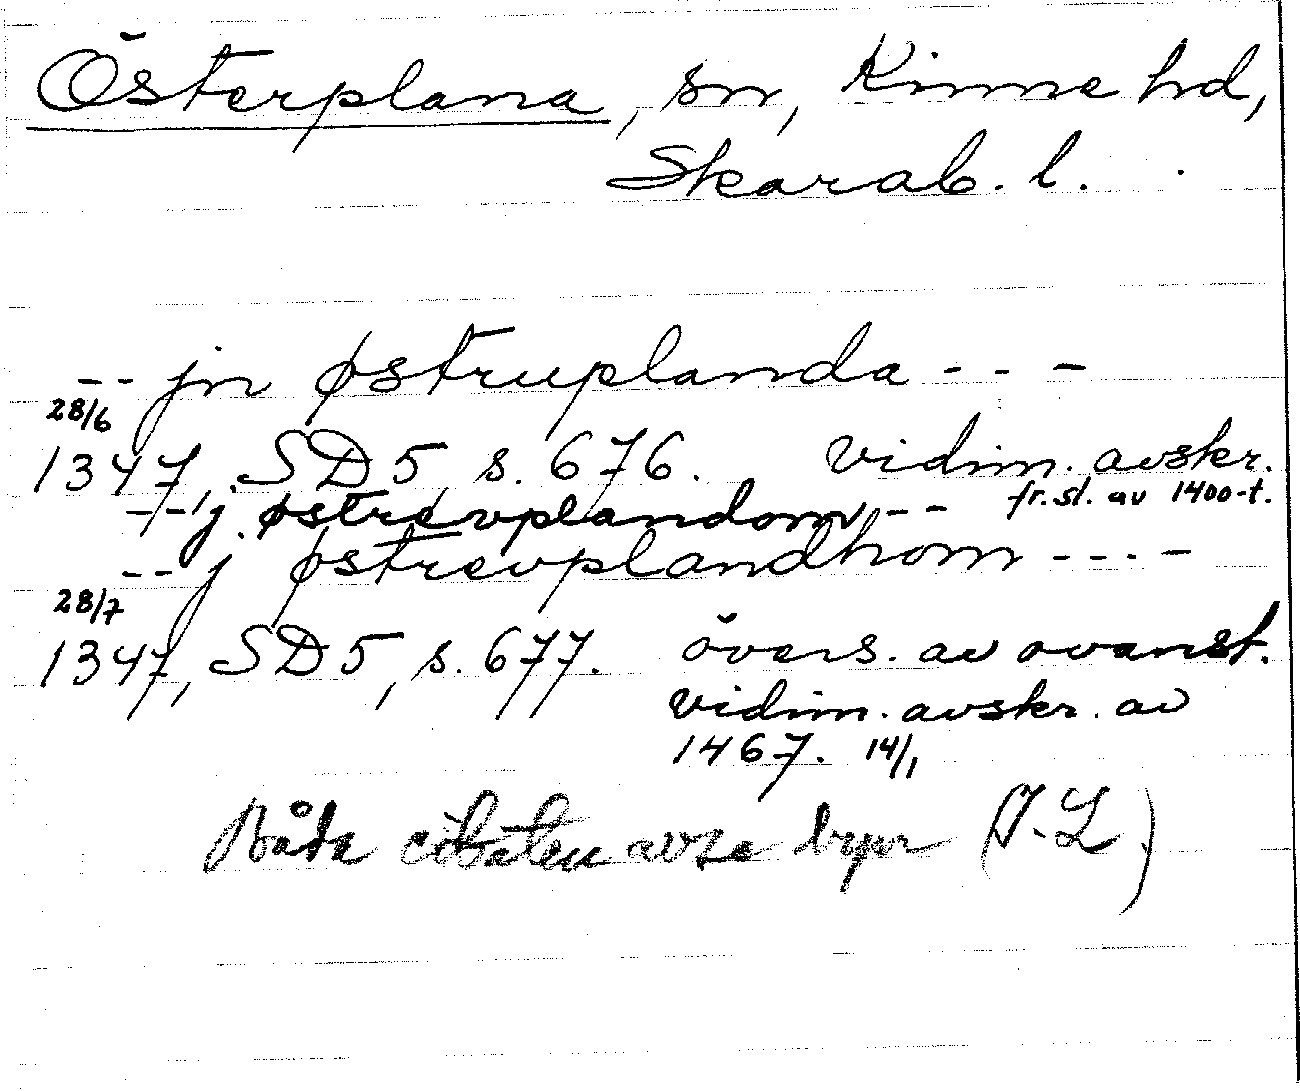 Österplana, sn, Kinne hd,
Skarab. l.
-- jn østruplanda - - -
28/6
1347, SD 5 s. 676. vidim. avskr.
fr. sl. av 1400-t.
-- j østrevplandom --
-- j østrevplandhom ----
28/7
1347, SD 5, s. 677. övers. av ovanst.
vidim. avskr. av
1467. 14/1
Båda citaten avse byn (I. L)